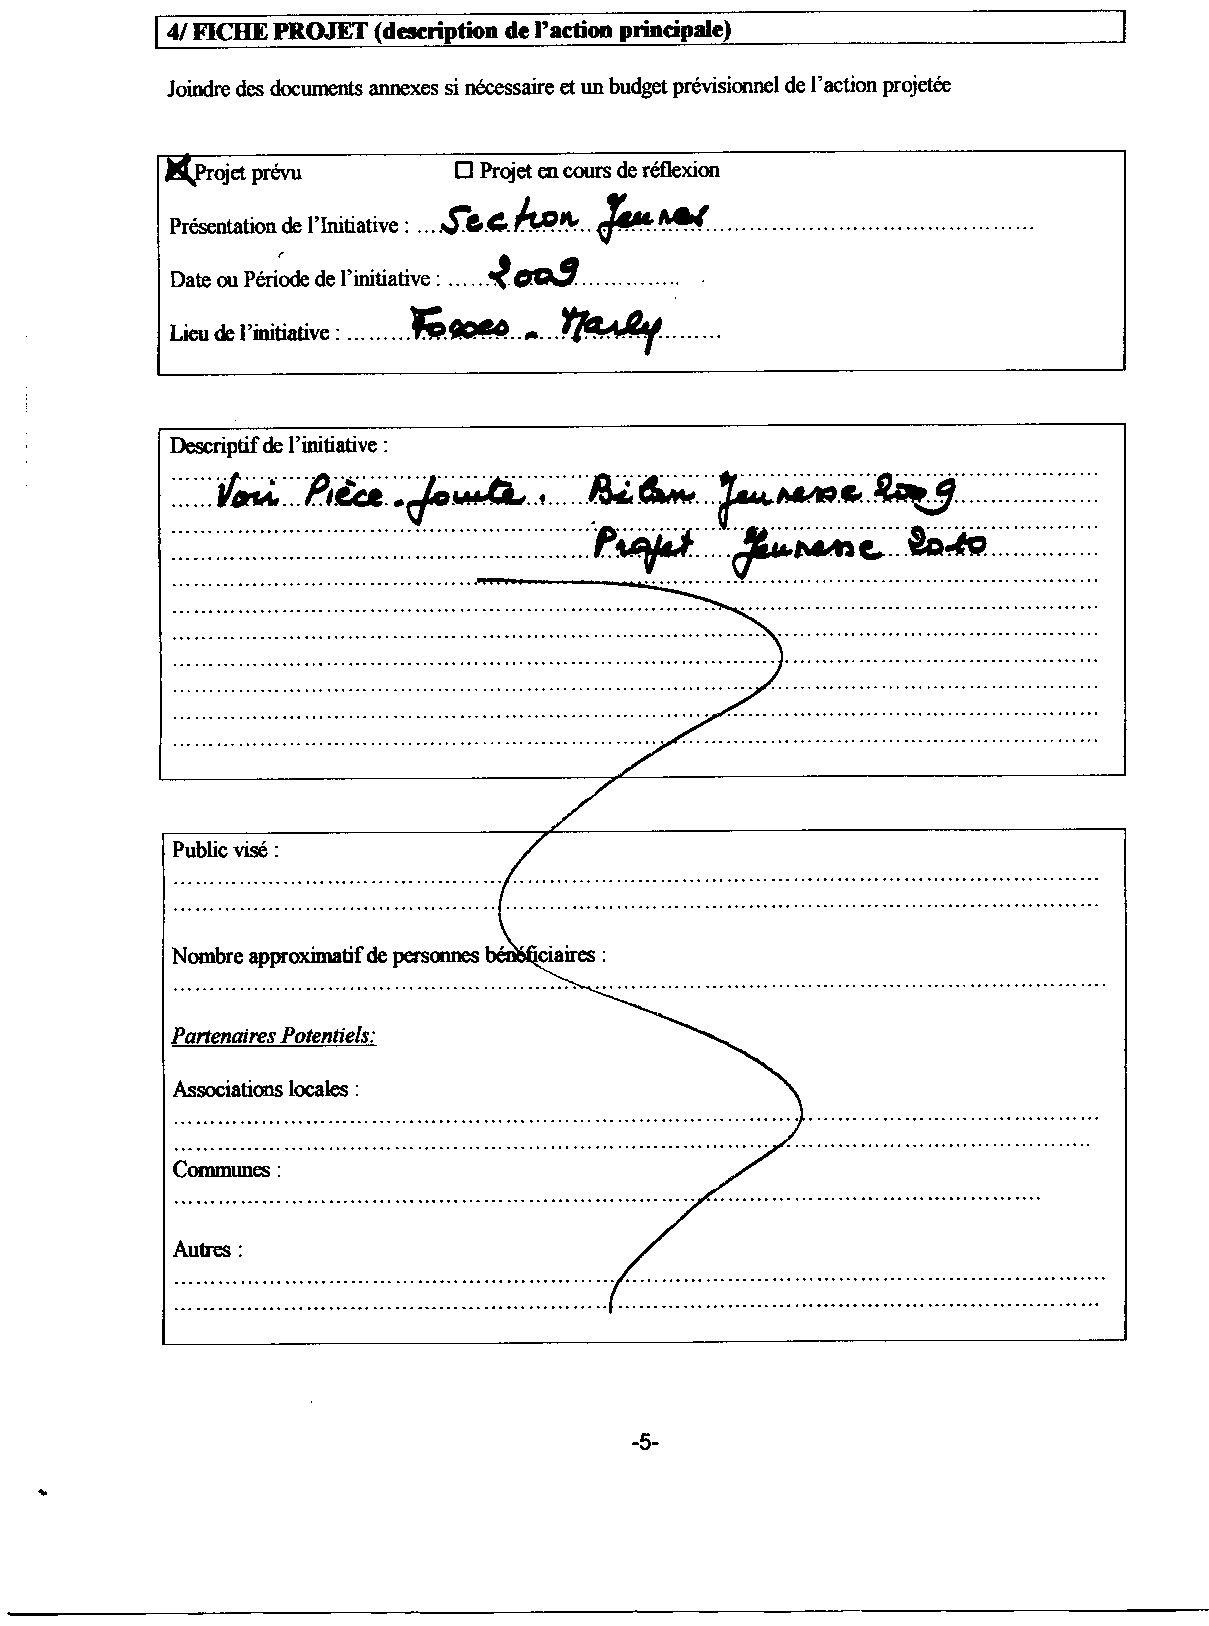 4/ FICHE PROJET (description de l'action principale)
Joindre des documents annexes si nécessaire et un budget prévisionnel de l'action projetée
☒ Projet prévu ☐ Projet en cours de réflexion
Présentation de l'Initiative : ... Section Jeunes
Date ou Période de l'initiative : ...... 2009
Lieu de l'initiative : ......... Fosses - Marly
Descriptif de l'initiative :
Voir Pièce - Jointe. Bilan Jeunesse 2009
Projet Jeunesse 2010
Public visé :
Nombre approximatif de personnes bénéficiaires :
Partenaires Potentiels:
Associations locales :
Communes :
Autres :
-5-